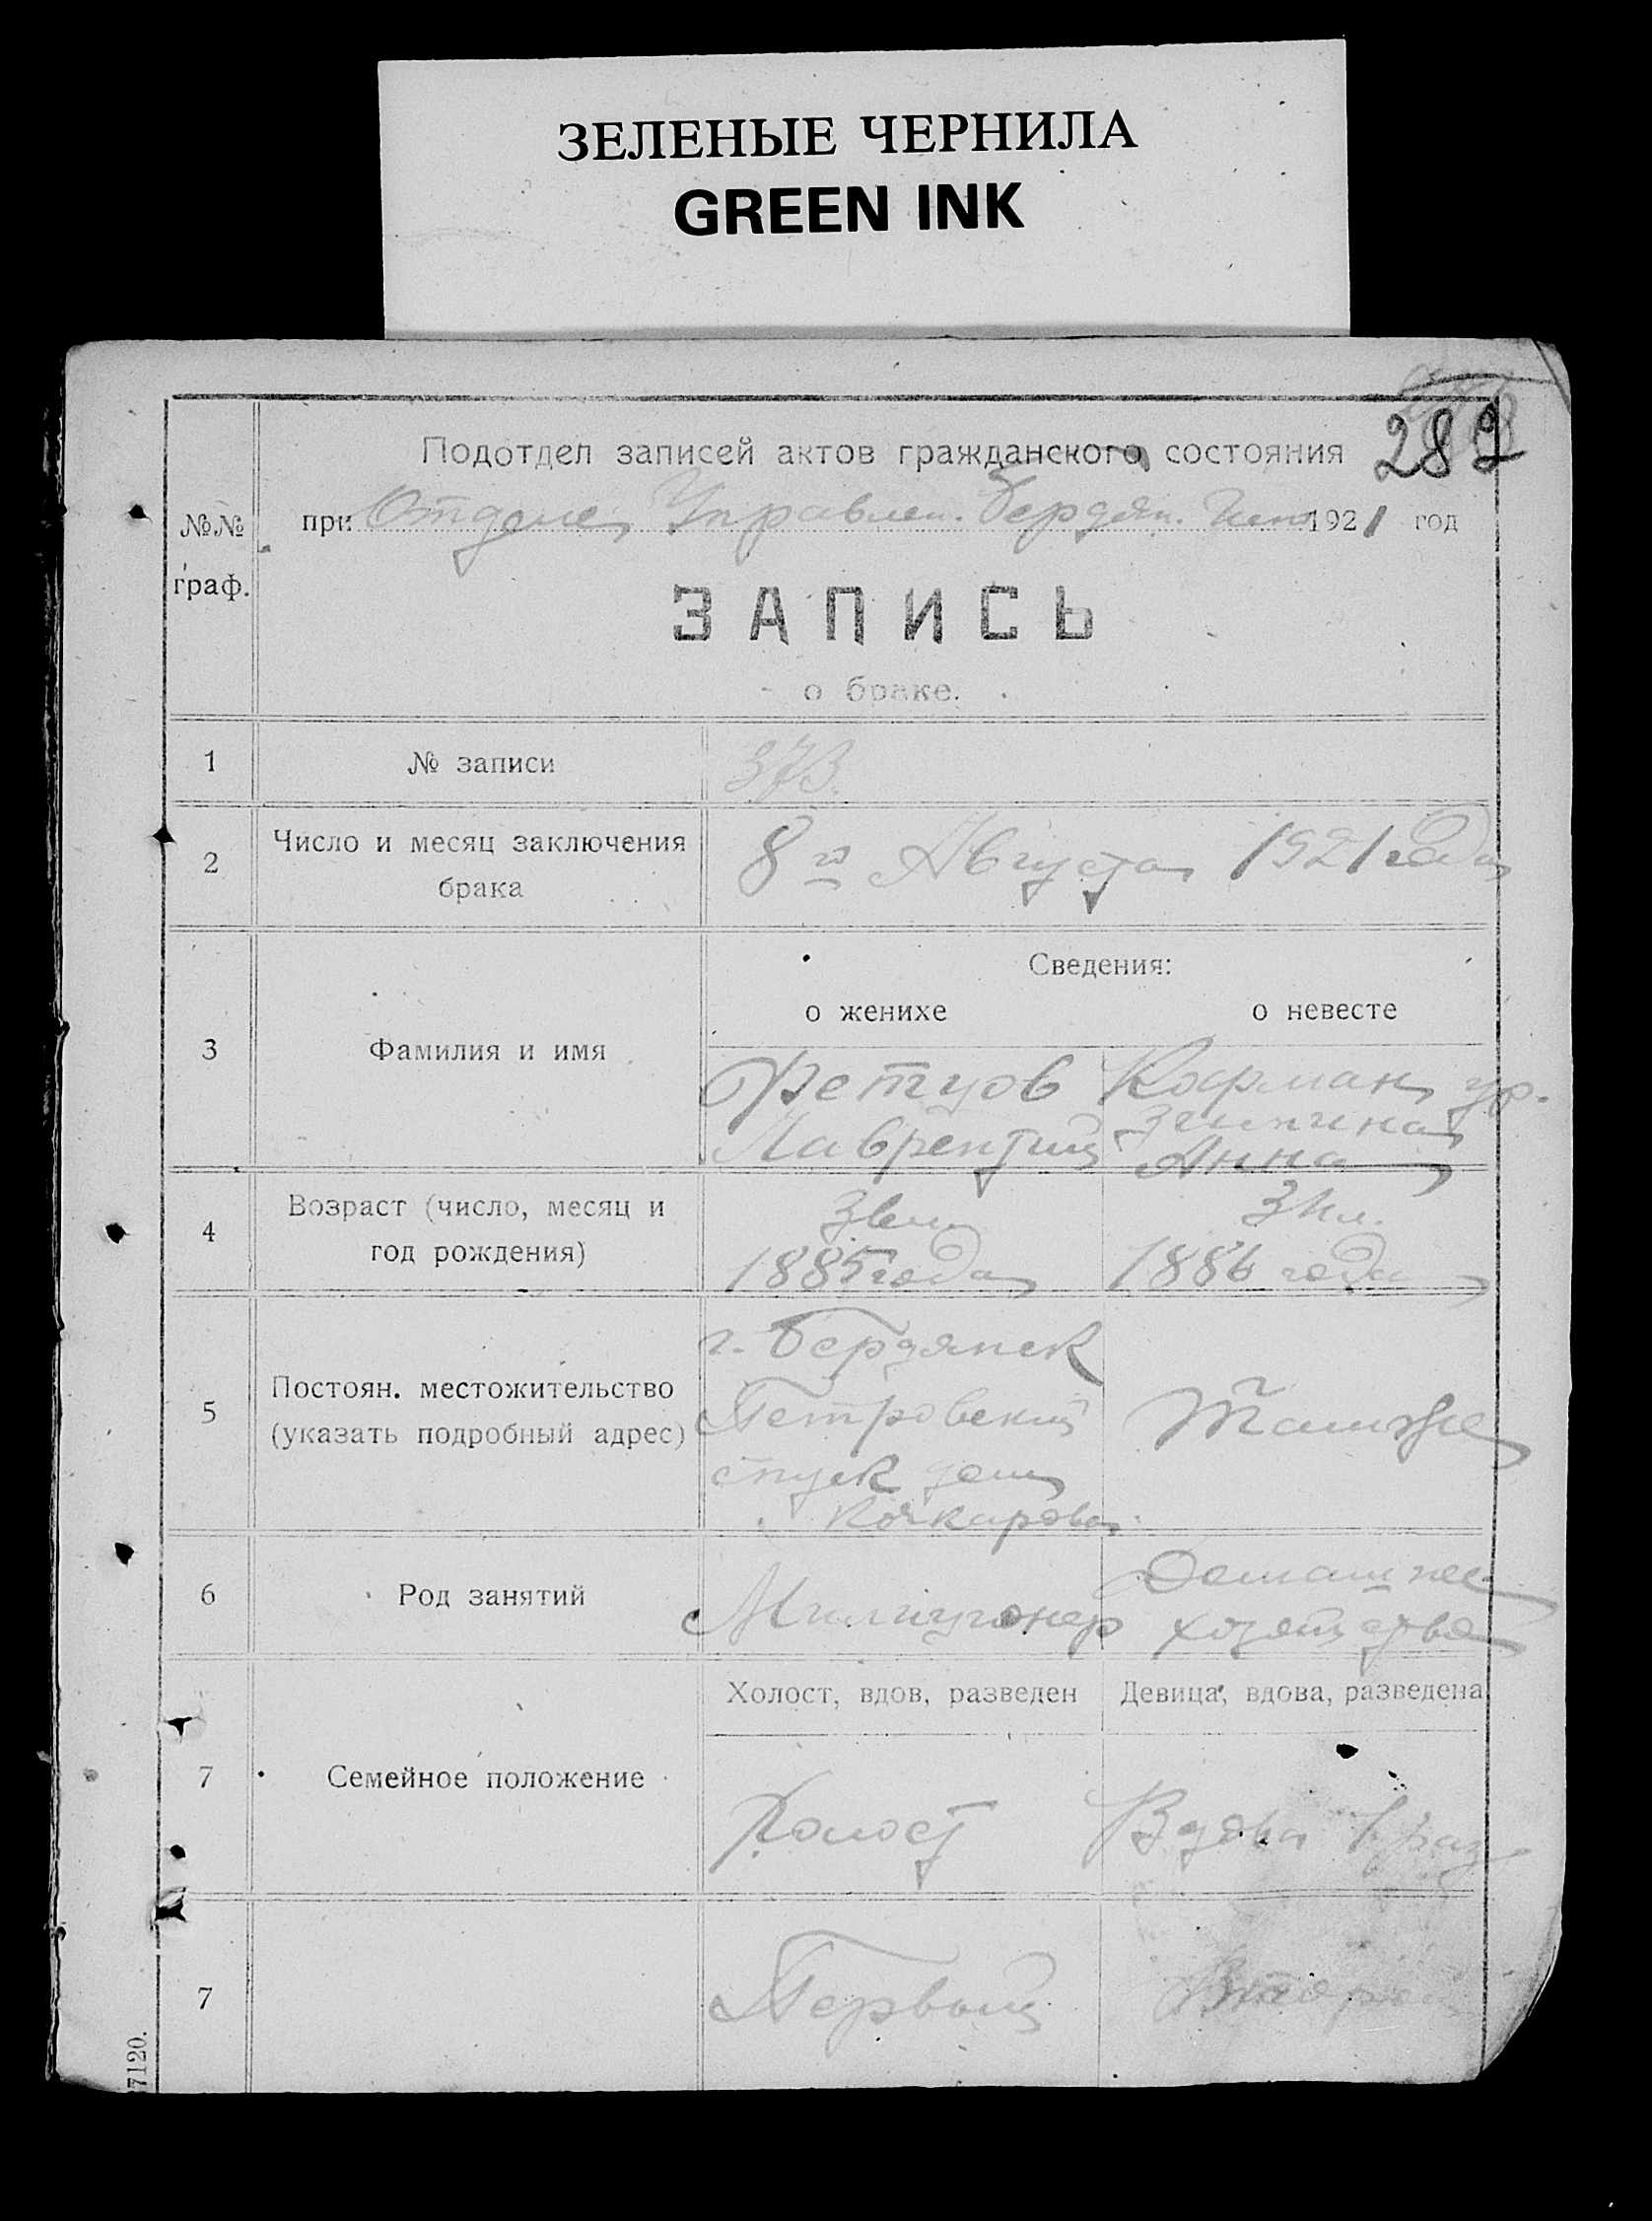 ЗЕЛЕНЫЕ ЧЕРНИЛА
GREEN INK
289
Подотдел записей актов гражданского состояния
при Отделе Управлен. Бердян. 1921 год
№№ граф.
ЗАПИСЬ
о браке.
1 № записи 373.
2 Число и месяц заключения брака 8го Августа 1921 года
Сведения:
о женихе о невесте
3 Фамилия и имя
Фетцов
Лаврентий
Кофман ур.
Анна
4 Возраст (число, месяц и год рождения)
1885 года
1886 года
5 Постоян. местожительство (указать подробный адрес)
г. Бердянск
Петровский
спуск дом
Кочкарова
Там же
6 Род занятий
Милиционер
Домашнее
хозяйство
Холост, вдов, разведен Девица, вдова, разведена
7 Семейное положение
Холост
Вдова
7
Первый
Второй
7120.